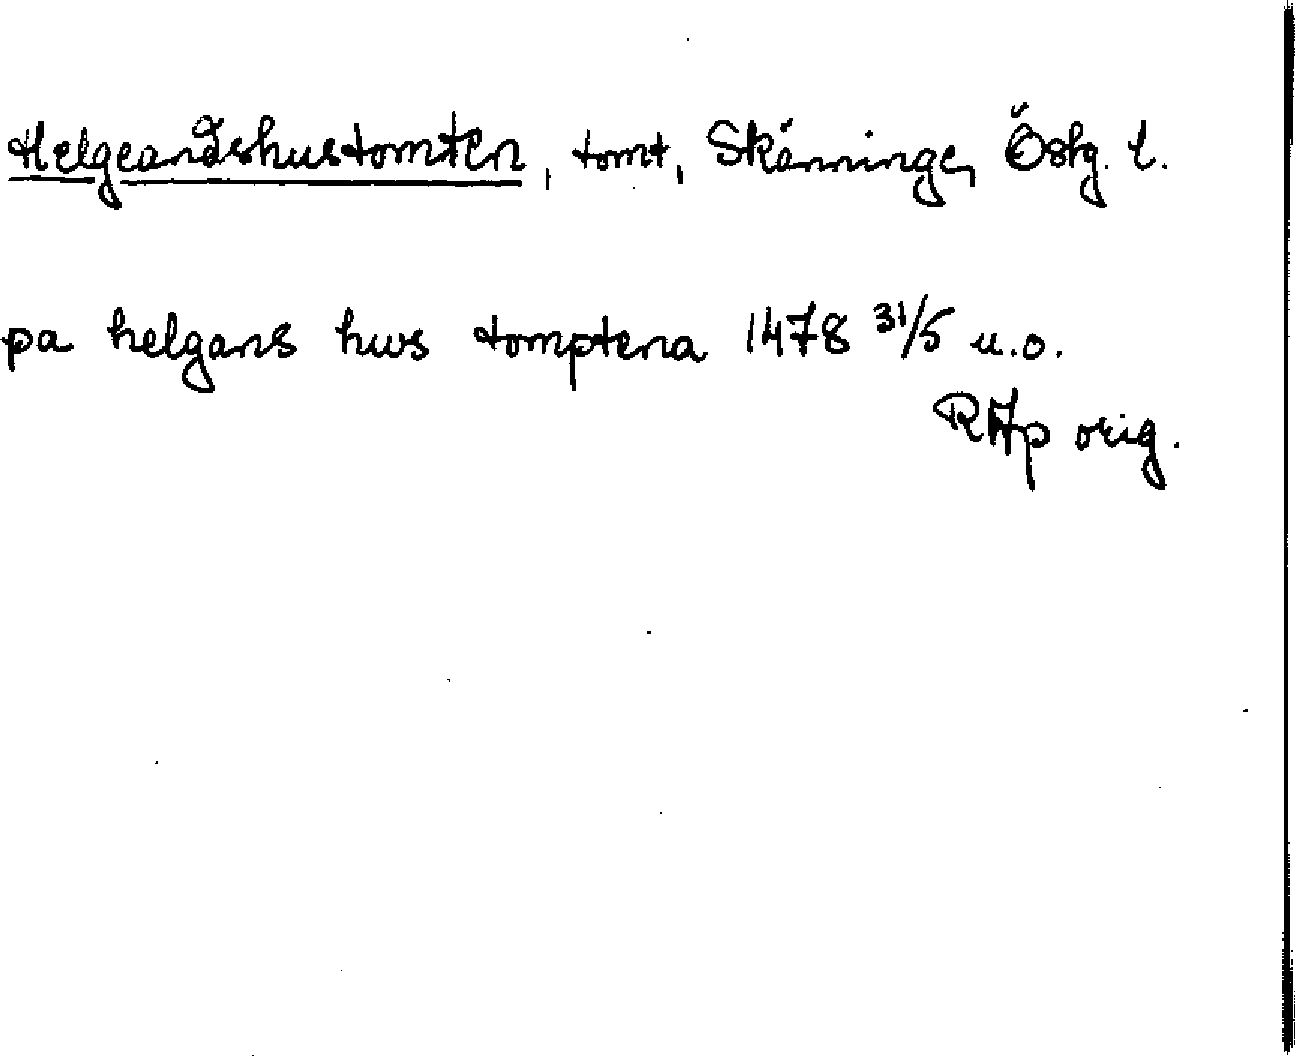 Helgeandshustomten, tomt, Skänninge, Östg. l.
pa helgans hws tomptena 1478 31/5 u.o.
RAp orig.